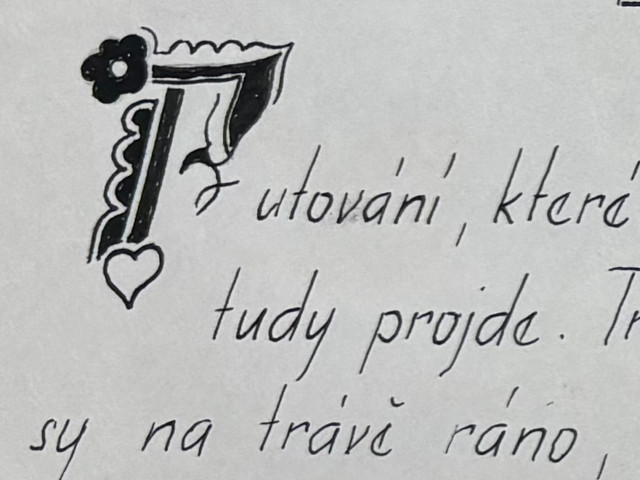 Putování, které
tudy projde. Tr
sy na trávě ráno,